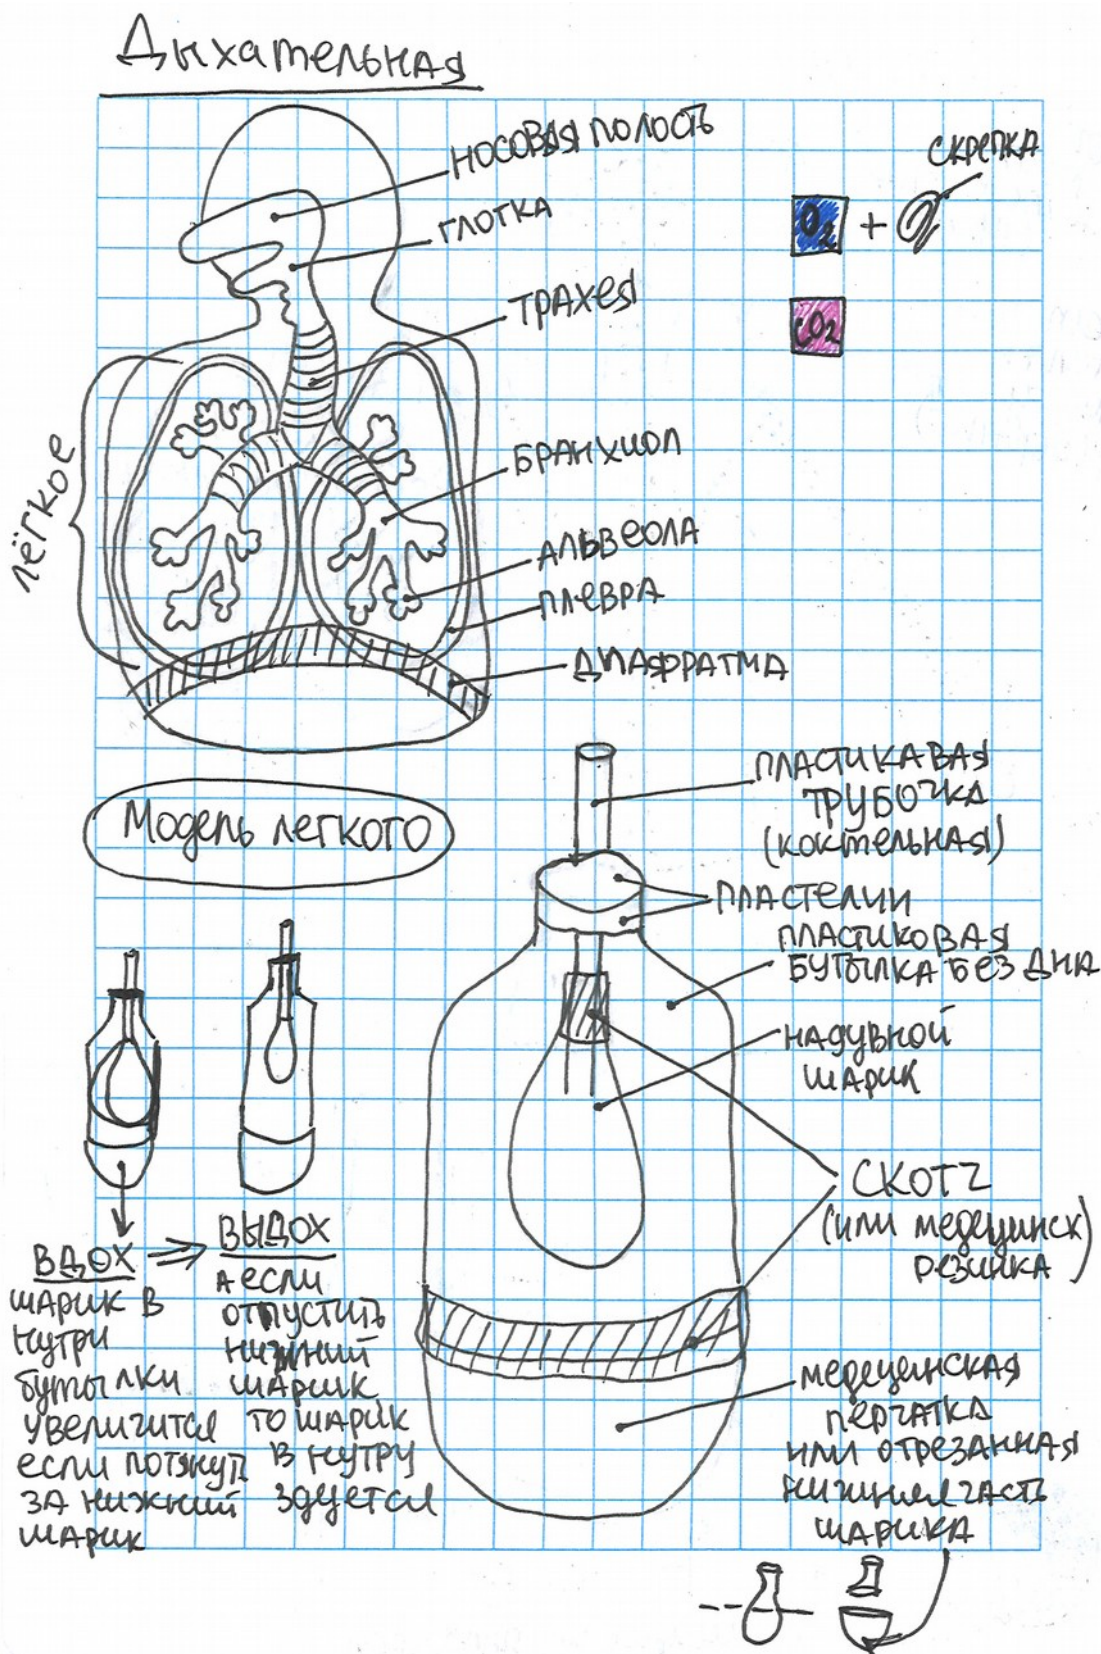 Дыхательная
НОСОВАЯ ПОЛОСТЬ
ГЛОТКА
ТРАХЕЯ
БРАНХИОЛ
АЛЬВЕОЛА
ПЛЕВРА
ДИАФРАГМА
лёгкое
СКРЕПКА
O2 +
CO2
Модель легкого
ПЛАСТИКАВАЯ
ТРУБОЧКА
(коктельная)
ПЛАСТЕЛИН
ПЛАСТИКОВАЯ
БУТЫЛКА БЕЗ ДНА
НАДУВНОЙ
ШАРИК
СКОТЧ
(или медецинск
резинка)
медецинская
перчатка
или отрезанная
нижняя часть
шарика
ВДОХ
ШАРИК В
НУТРИ
бутылки
увеличится
если потянут
за нижний
шарик
ВЫДОХ
А если
отпустить
нижний
шарик
то шарик
в нутру
здуется